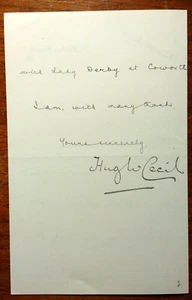 with Lady Derby at Coworth
I am, with many thanks
Yours sincerely
Hugh Cecil